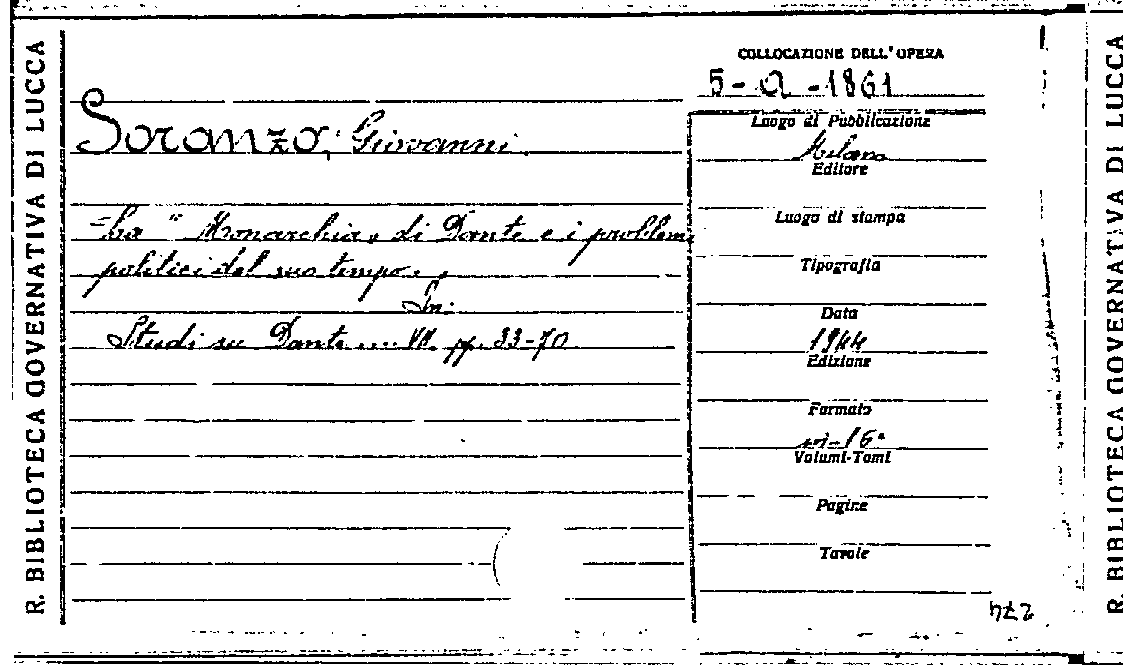 R. BIBLIOTECA GOVERNATIVA DI LUCCA
COLLOCAZIONE DELL'OPERA
5-Q-1861
Soranzo, Giovanni.
=La "Monarchia„ di Dante e i problemi
politici del suo tempo.
In:
Studi su Dante.... VII. pp. 33-70
Luogo di Pubblicazione
Milano
Editore
Luogo di stampa
Tipografia
Data
1944
Edizione
Formato
in-16°
Volumi-Tomi
Pagine
Tavole
274
R. BIBLIOTECA GOVERNATIVA DI LUCCA